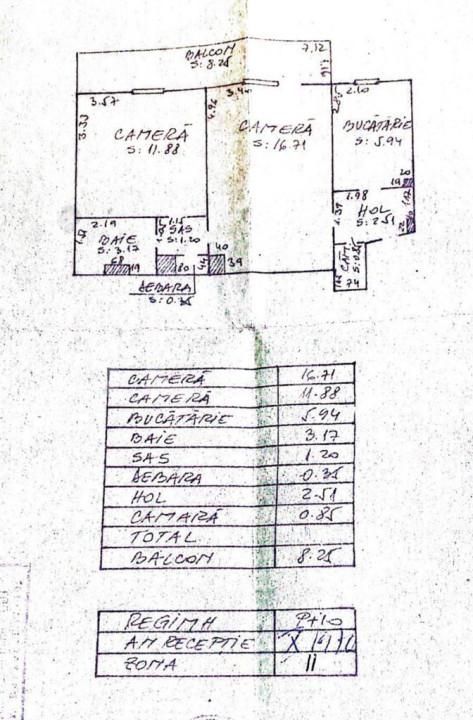 BALCON
S: 8.25
7.12
1.16
3.57
3.40
2.10
3.37
4.92
2.85
CAMERĂ
S: 11.88
CAMERĂ
S: 16.71
BUCĂTĂRIE
S: 5.94
20
19
1.98
HOL
S: 2.51
2.19
1.15
SAS
S: 1.20
BAIE
S: 3.17
68
19
80
40
39
CĂM.
74
DEBARA
S: 0.35
CAMERĂ 16.71
CAMERĂ 11.88
BUCĂTĂRIE 5.94
BAIE 3.17
SAS 1.20
DEBARA 0.35
HOL 2.51
CAMARĂ 0.85
TOTAL
BALCON 8.25
REGIM H P+10
AN RECEPTIE
ZONA II